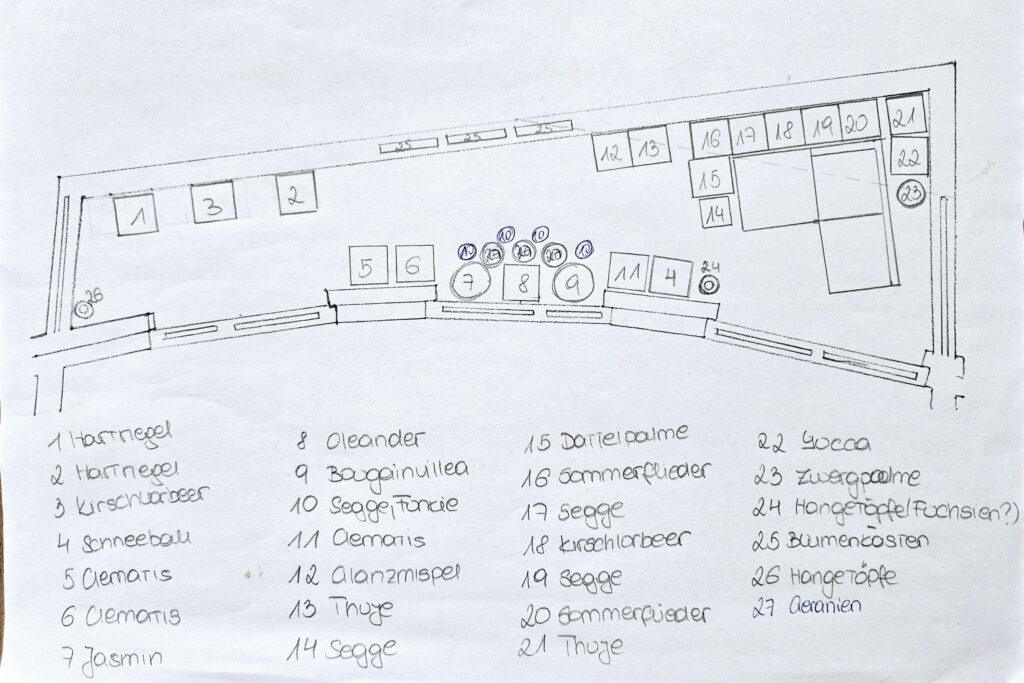 25 25 25
12 13
16 17 18 19 20
21
22
23
15
14
1
3
2
10 10
10 10
5 6
7 8 9
11 4
24
26
1 Hartriegel
2 Hartriegel
3 Kirschlorbeer
4 Schneeball
5 Clematis
6 Clematis
7 Jasmin
8 Oleander
9 Bougainvillea
10 Segge, Funkie
11 Clematis
12 Glanzmispel
13 Thuje
14 Segge
15 Dattelpalme
16 Sommerflieder
17 Segge
18 Kirschlorbeer
19 Segge
20 Sommerflieder
21 Thuje
22 Yucca
23 Zwergpalme
24 Hängetöpfe (Fuchsien?)
25 Blumenkästen
26 Hängetöpfe
27 Geranien